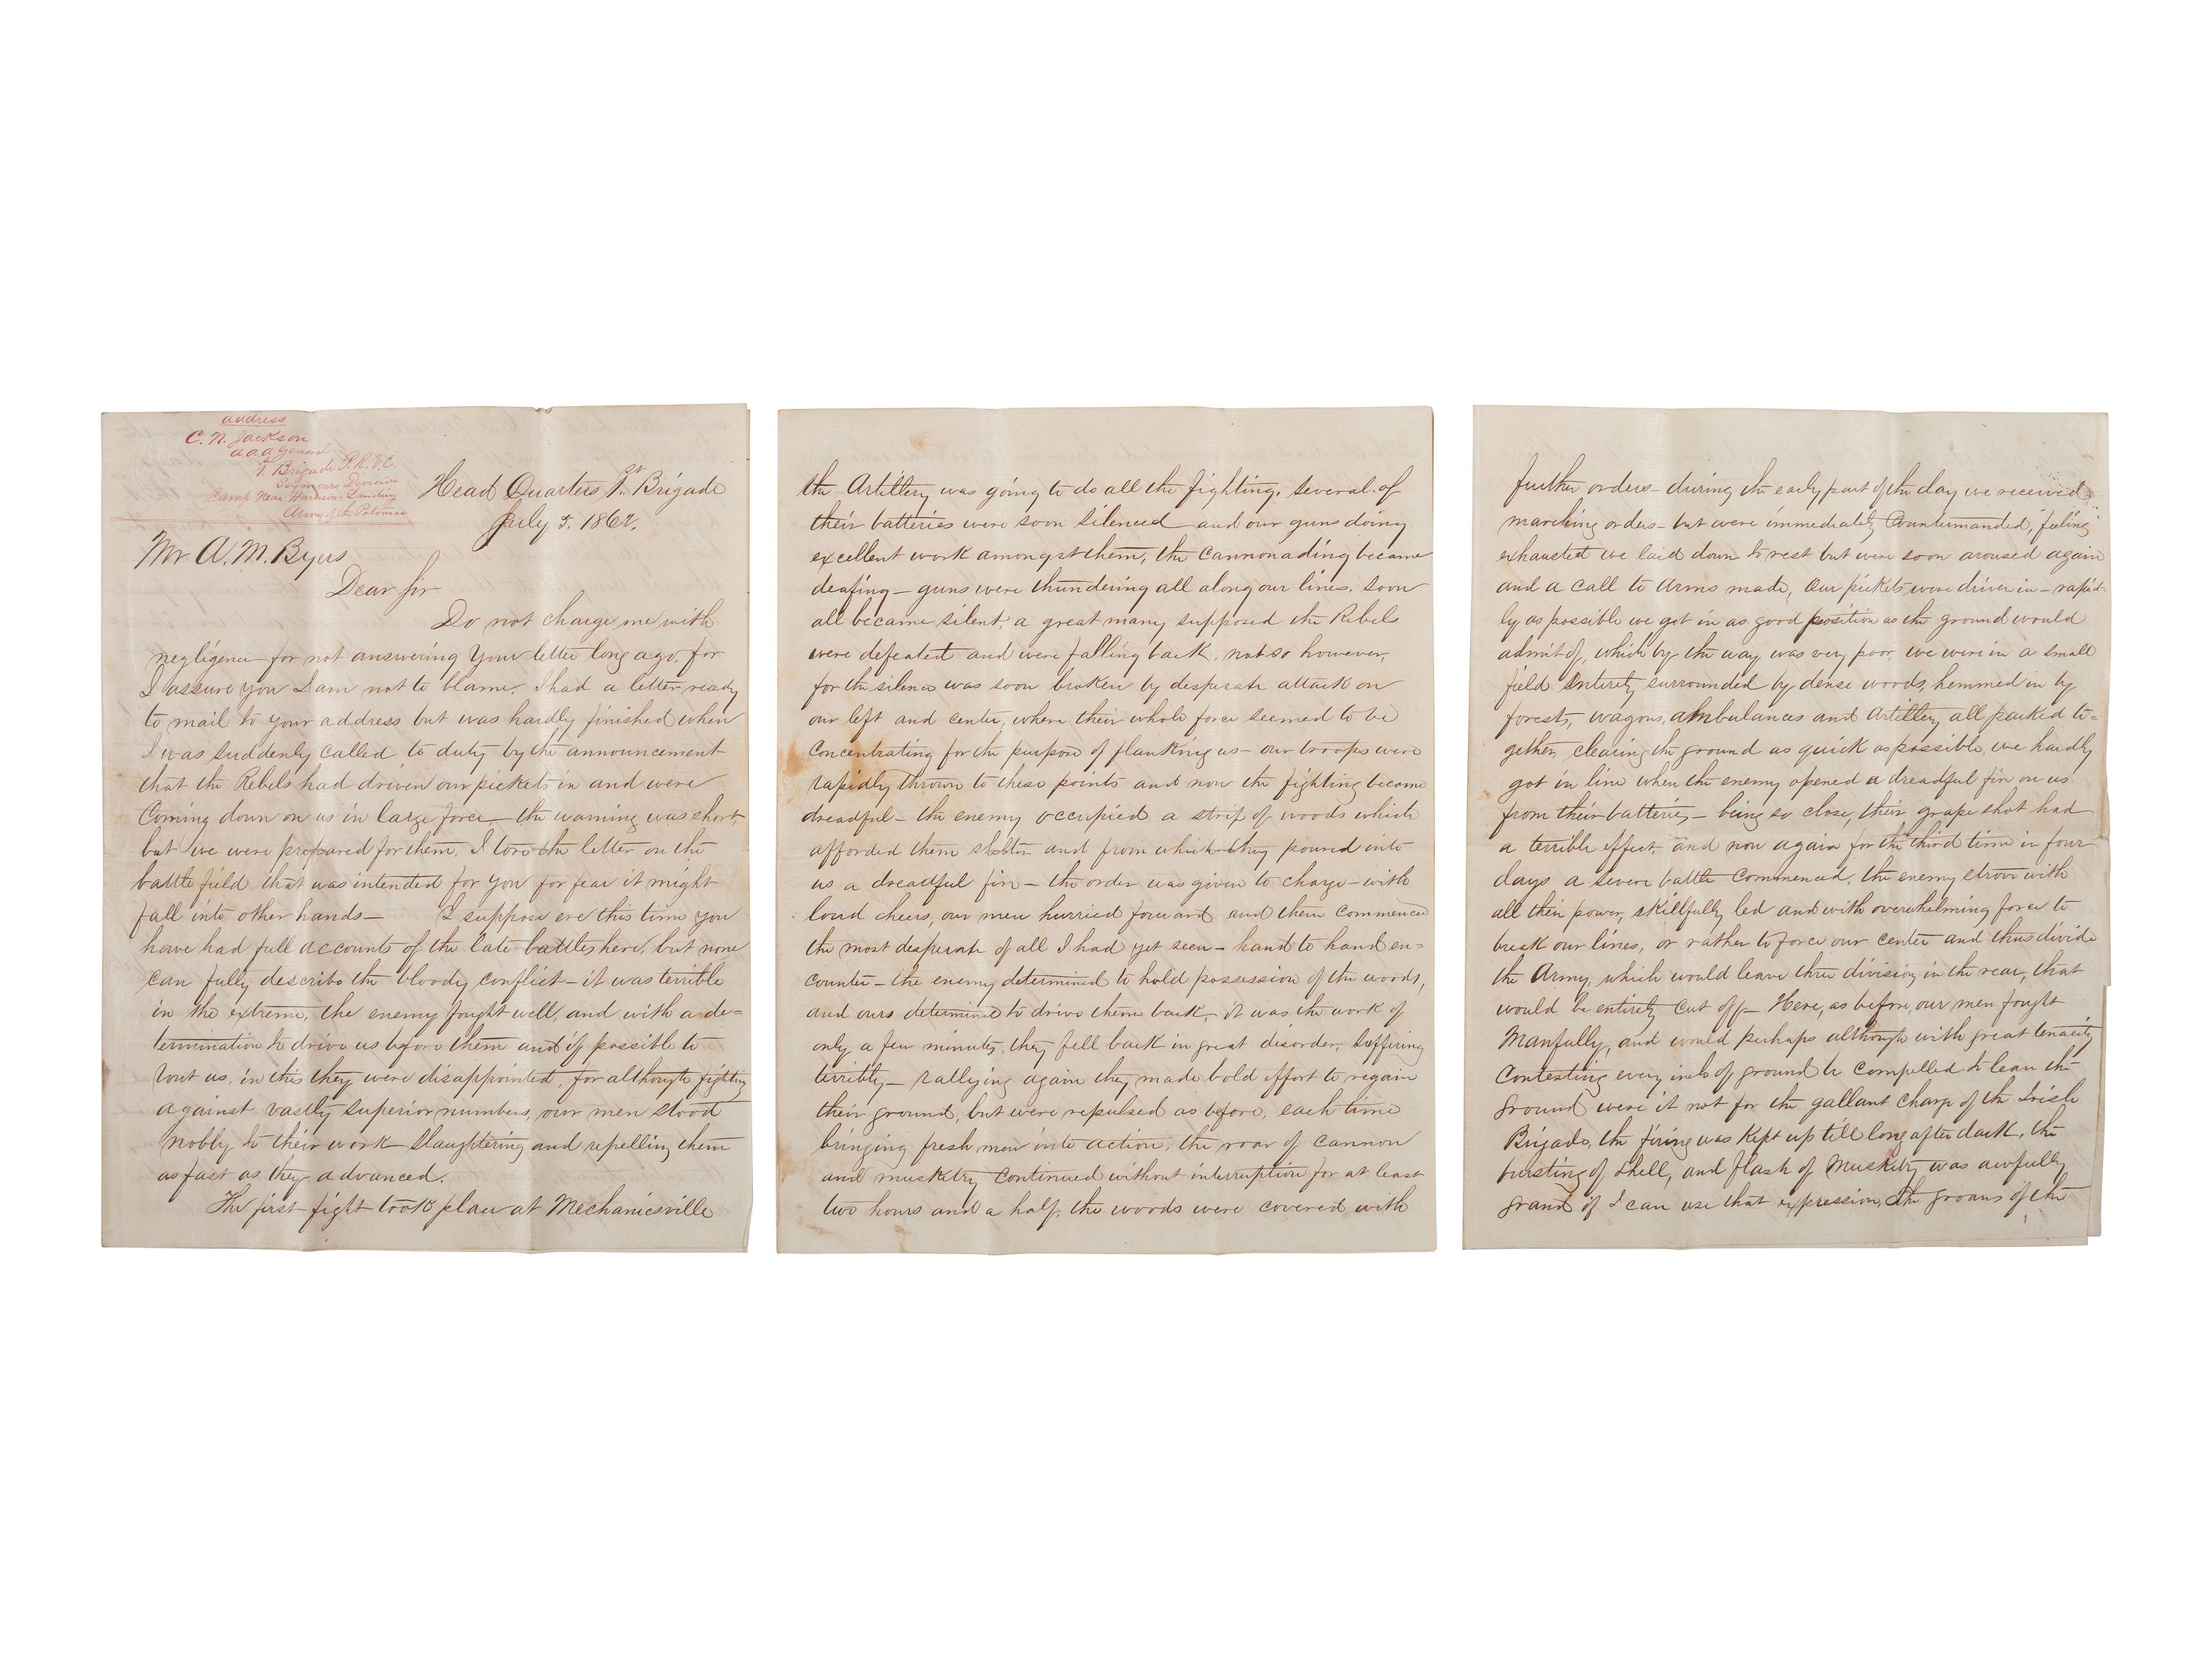 address
C. N. Jackson
a.a.a General
1st Brigade P.R.V.C.
Seymours Division
Camp Near Harrisons Landing
Army of the Potomac
Head Quarters 1st Brigade
July 5. 1862.
Mr A. M. Byers
Dear Sir
Do not charge me with
negligence for not answering your letter long ago, for
I assure you I am not to blame. I had a letter ready
to mail to your address but was hardly finished when
I was suddenly called to duty by the announcement
that the Rebels had driven our pickets in and were
Coming down on us in large force, the warning was short,
but we were prepared for them. I tore the letter on the
battle field that was intended for you for fear it might
fall into other hands— I suppose ere this time you
have had full accounts of the late battles here, but none
can fully describe the bloody conflict — it was terrible
in the extreme, the enemy fought well, and with a de=
termination to drive us before them and if possible to
rout us, in this they were disappointed, for although fighting
against vastly superior numbers, our men stood
nobly to their work Slaughtering and repelling them
as fast as they advanced.
The first fight took place at Mechanicsville
the Artillery was going to do all the fighting. Several of
their batteries were soon silenced and our guns doing
excellent work amongst them, the cannonading became
deafing — guns were thundering all along our lines. soon
all became silent, a great many supposed the Rebels
were defeated and were falling back, not so however,
for the silence was soon broken by desperate attack on
our left and center, where their whole force seemed to be
Concentrating for the purpose of flanking us — our troops were
rapidly thrown to these points and now the fighting became
dreadful — the enemy occupied a strip of woods which
afforded them shelter and from which they poured into
us a dreadful fire — the order was given to charge — with
loud cheers, our men hurried forward and then commenced
the most desperate of all I had yet seen — hand to hand en=
counter — the enemy determined to hold possession of the woods,
and ours determined to drive them back, it was the work of
only a few minutes, they fell back in great disorder, Suffering
terribly — rallying again they made bold effort to regain
their ground, but were repulsed as before, each time
bringing fresh men into action, the roar of cannon
and musketry continued without interruption for at least
two hours and a half, the woods were covered with
further orders — during the early part of the day we received
marching orders — but were immediately Countermanded, feeling
exhausted we laid down to rest but were soon aroused again
and a call to Arms made, Our pickets were driven in — rapid-
ly as possible we got in as good position as the ground would
admit of, which by the way was very poor, we were in a small
field Entirely surrounded by dense woods, hemmed in by
forests, wagons, ambulances and Artillery all parked to=
gether, clearing the ground as quick as possible, we hardly
got in line when the enemy opened a dreadful fire on us
from their batteries — being so close, their grape shot had
a terrible effect, and now again for the third time in four
days a severe battle commenced, the enemy strove with
all their power, skillfully led and with overwhelming force to
break our lines, or rather to force our center and thus divide
the Army, which would leave three division in the rear, that
would be entirely cut off — Here, as before, our men fought
Manfully, and would perhaps although with great tenacity
Contesting every inch of ground be compelled to leave the
ground were it not for the gallant Charge of the Irish
Brigade, the firing was kept up till long after dark, the
bursting of Shell, and flash of Musketry was awfully
grand if I can use that expression, the groans of the